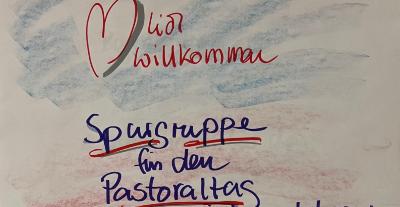 lich
willkommen
Spurgruppe
für den
Pastoraltag